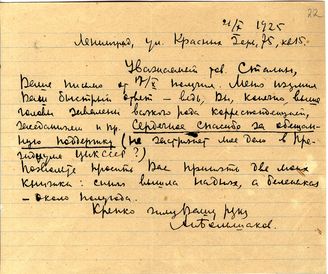 22
21/X 1925
Ленинград, ул. Красных Зорь, 75, кв. 15.
Уважаемый тов. Сталин,
Ваше письмо от 17/X получил. Меня изумил
Ваш быстрый ответ – ведь, Вы, конечно, выше
головы завалены всякого рода корреспонденцией,
заседаниями и пр. Сердечное спасибо за обещан-
ную поддержку (не застрянет мое дело в Пре-
зидиуме ЦИК СССР?)
Позвольте просить Вас принять две мои
книжки: синяя вышла на днях, а беленькая
– около полугода.
Крепко жму Вашу руку
Л. Большаков.